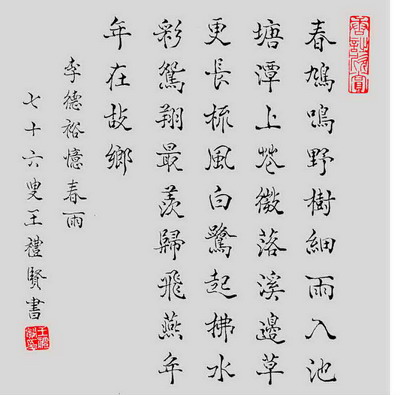 春鳩鳴野樹細雨入池
塘潭上花微落溪邊草
更長梳風白鷺起拂水
彩鴛翔最羨歸飛燕年
年在故鄉
李德裕憶春雨
七十六叟王禮賢書